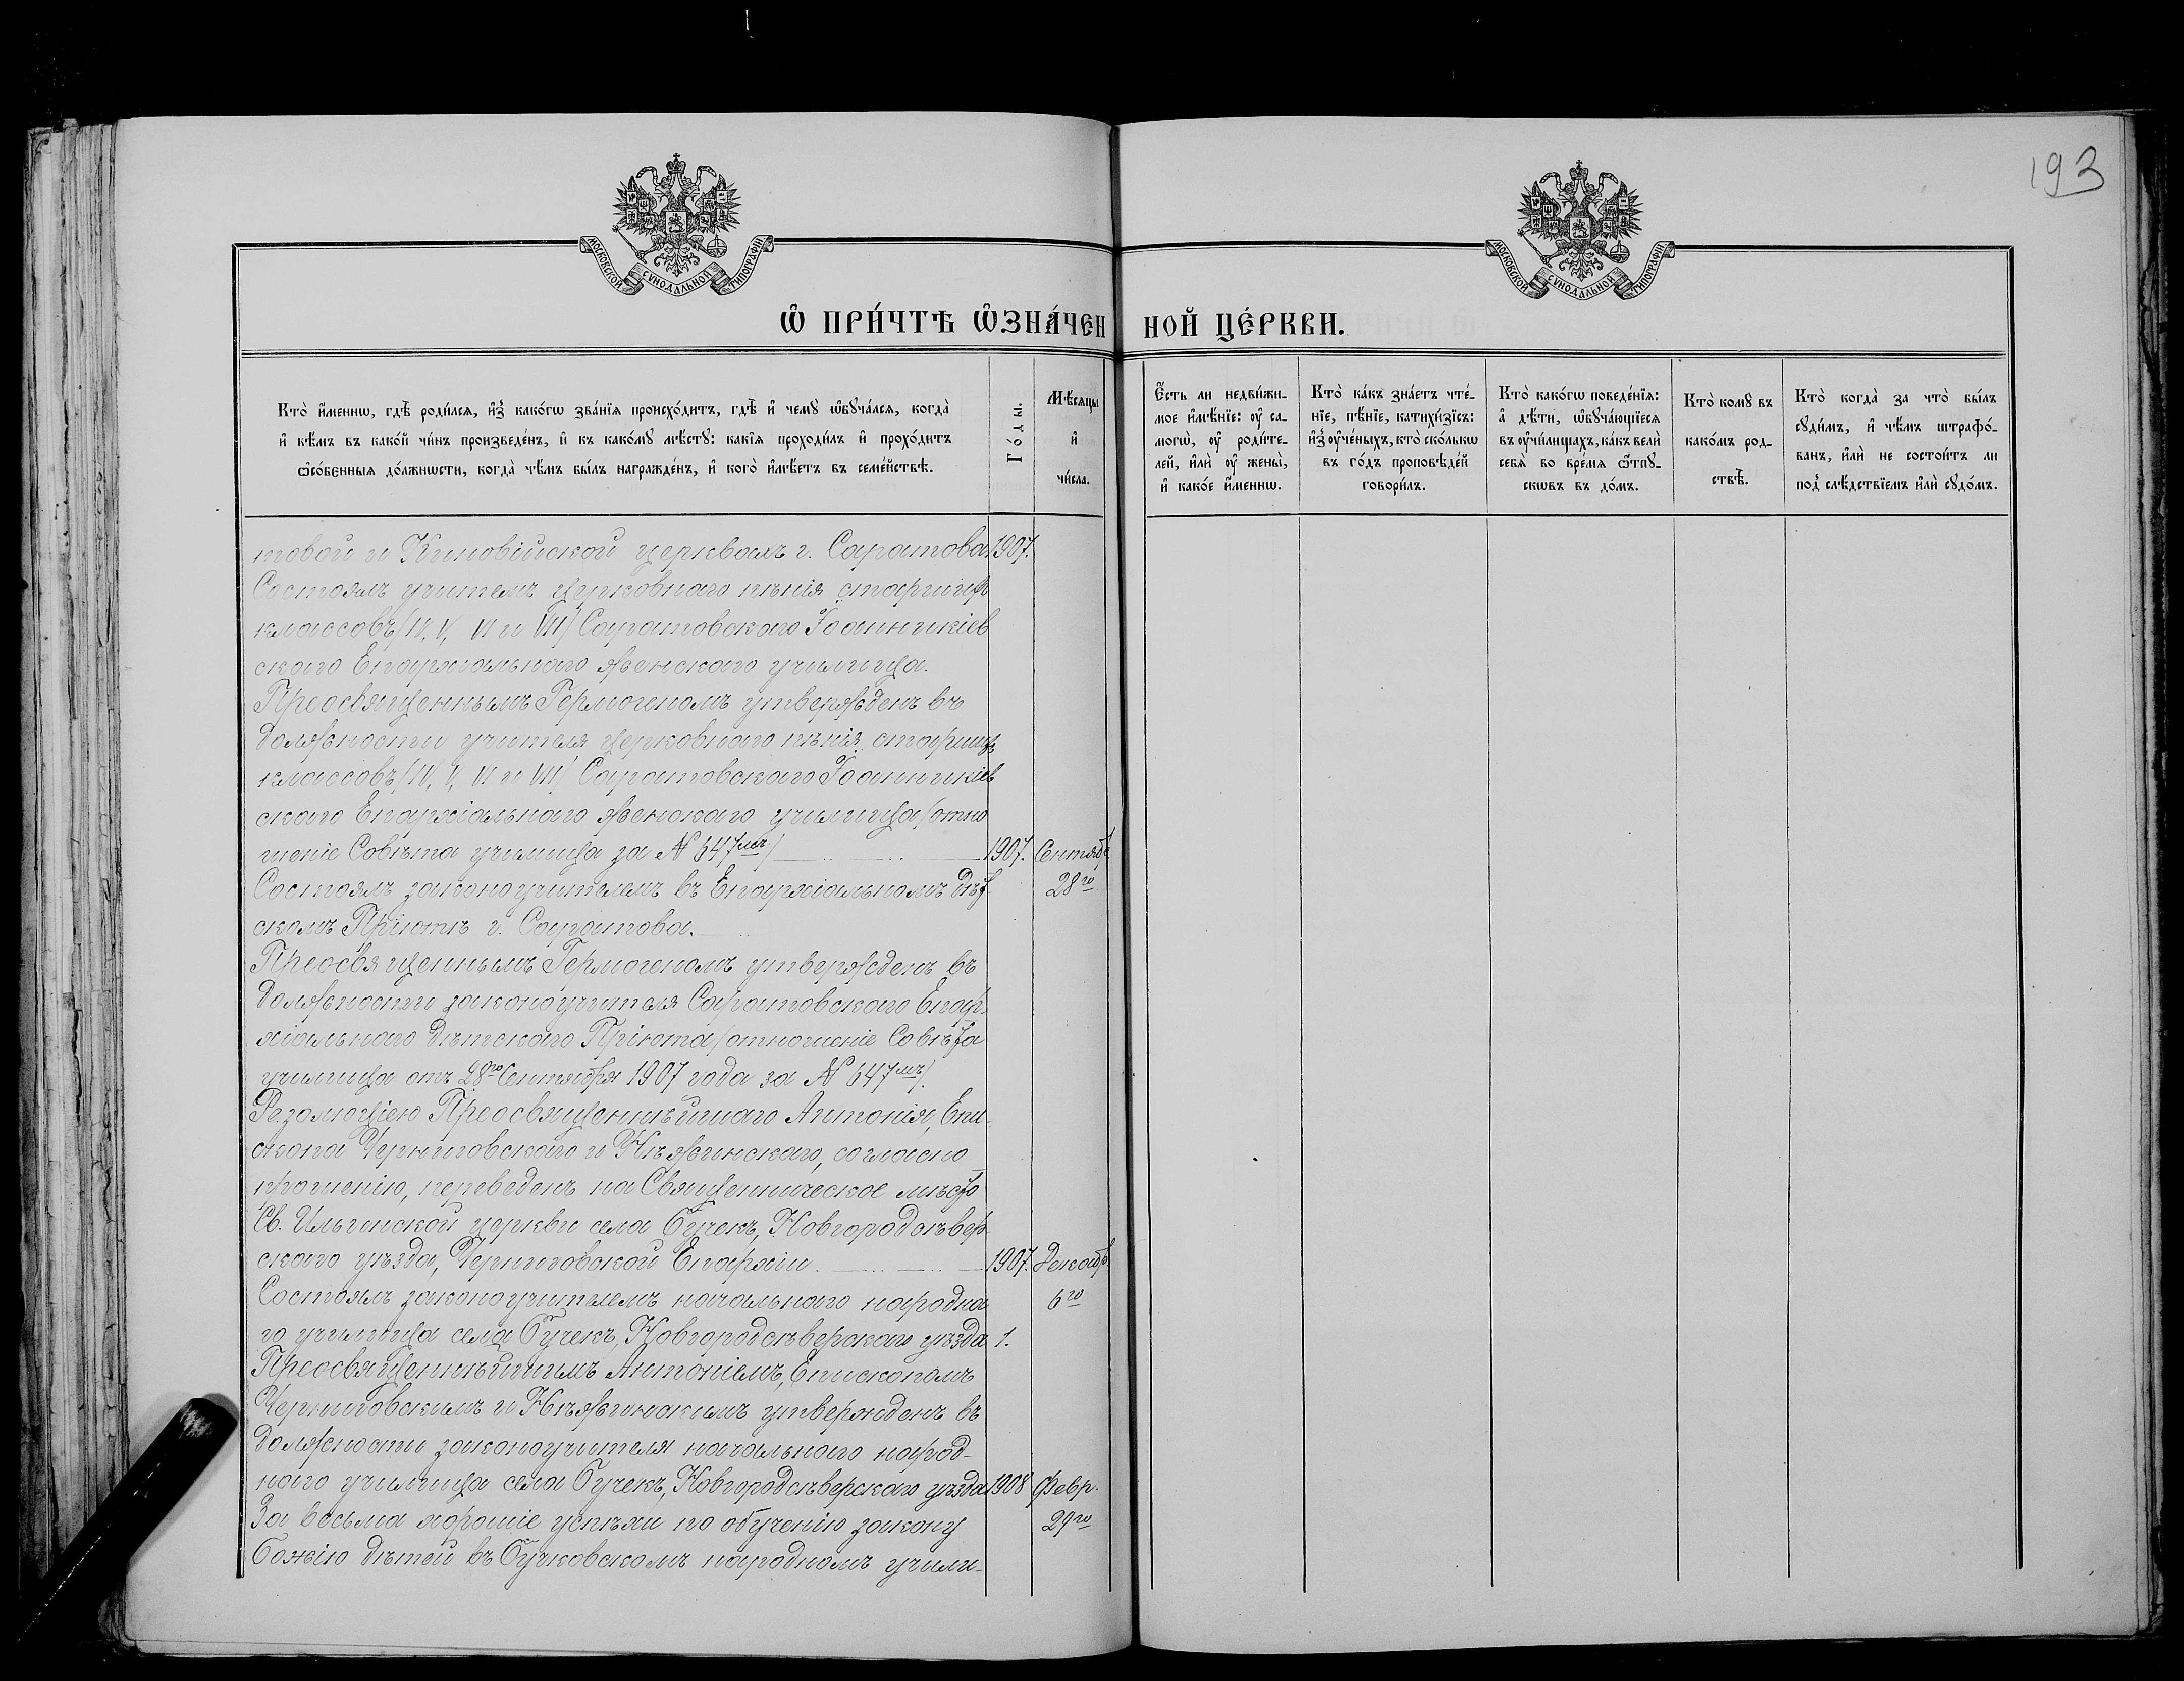 193
МОСКОВСКОЙ СѴНОДАЛЬНОЙ ТИПОГРАФІИ
МОСКОВСКОЙ СѴНОДАЛЬНОЙ ТИПОГРАФІИ
Ѡ ПРИ́ЧТѢ Ѡ҆ЗНА́ЧЕННОЙ ЦЕ́РКВИ.
Кто̀ и҆́менно, гдѣ̀ роди́лсѧ, и҆з̾ како́гѡ зва́нїѧ происхо́дитъ, гдѣ̀ и҆ чемꙋ̀ ѡ҆бꙋча́лсѧ, когда̀
и҆ кѣ́мъ въ како́й чи́нъ произведе́нъ, и҆ къ како́мꙋ мѣ́стꙋ: какі̑ѧ проходи́лъ и҆ прохо́дитъ
ѡ҆со́бенныѧ до́лжнѡсти, когда̀ чѣ́мъ бы́лъ награжде́нъ, и҆ кого̀ и҆мѣ́етъ въ семе́йствѣ.
Го́ды.
Мѣ́сѧцы
и҆
чи́сла.
Е҆́сть ли недви́жи-
мое и҆мѣ́нїе: оу҆ са-
могѡ̀, оу҆ роди́те-
лей, и҆лѝ оу҆ жены̀,
и҆ како́е и҆́меннѡ.
Кто̀ ка́къ зна́етъ чте́-
нїе, пѣ́нїе, катихи́зїсъ:
и҆з̾ оу҆че́ныхъ, кто̀ ско́лькѡ
въ го́дъ проповѣ́дей
говори́лъ.
Кто̀ како́гѡ поведе́нїѧ:
а҆ дѣ́ти, ѡ҆бꙋча́ющїесѧ
въ оу҆чи́лищахъ, ка́къ велѝ
себѧ̀ во вре́мѧ ѿпꙋ-
скѡвъ въ до́мъ.
Кто̀ комꙋ̀ въ
како́мъ род-
ствѣ̀.
Кто̀ когда̀ за что̀ бы́лъ
сꙋди́мъ, и҆ чѣ́мъ штрафо́-
ванъ, и҆лѝ не состои́тъ ли
под̾ слѣ́дствїемъ и҆лѝ сꙋдо́мъ.
товой и Киновійской церквахъ г. Саратова 1907.
Состоялъ учителемъ церковнаго пѣнія старшихъ
классовъ /IV, V, VI и VII/ Саратовскаго Іоанникіев
скаго Епархіальнаго женскаго училища.
Преосвященнымъ Гермогеномъ утвержденъ въ
должности учителя церковнаго пѣнія старшихъ
классовъ /IV, V, VI и VII/ Саратовскаго Іоанникіев
скаго Епархіальнаго женскаго училища /отно
шеніе Совѣта училища за № 647мъ/ 1907. Сентябр
Состоялъ законоучителемъ въ Епархіальномъ Дѣт- 28го
скомъ Пріютѣ г. Саратова.
Преосвященнымъ Гермогеномъ утвержденъ въ
должности законоучителя Саратовскаго Епар-
хіальнаго Дѣтскаго Пріюта /отношеніе Совѣта
училища отъ 28го Сентября 1907 года за № 647мъ/.
Резолюціею Преосвященнѣйшаго Антонія, Епи-
скопа Черниговскаго и Нѣжинскаго, согласно
прошенію, переведенъ на Священническое мѣсто
Св. Ильинской церкви села Бучекъ, Новгородсѣвер-
скаго уѣзда, Черниговской Епархіи. 1907. Декабр.
Состоялъ законоучителемъ начальнаго народна 6го
го училища села Бучекъ, Новгородсѣверскаго уѣзда 1.
Преосвященнѣйшимъ Антоніемъ, Епископомъ
Черниговскимъ и Нѣжинскимъ утвержденъ въ
должности законоучителя начальнаго народ-
наго училища села Бучекъ, Новгородсѣверскаго уѣзда 1908 Февр.
За весьма хорошіе успѣхи по обученію закону 29го
Божію дѣтей въ Бучковскомъ народномъ учили-